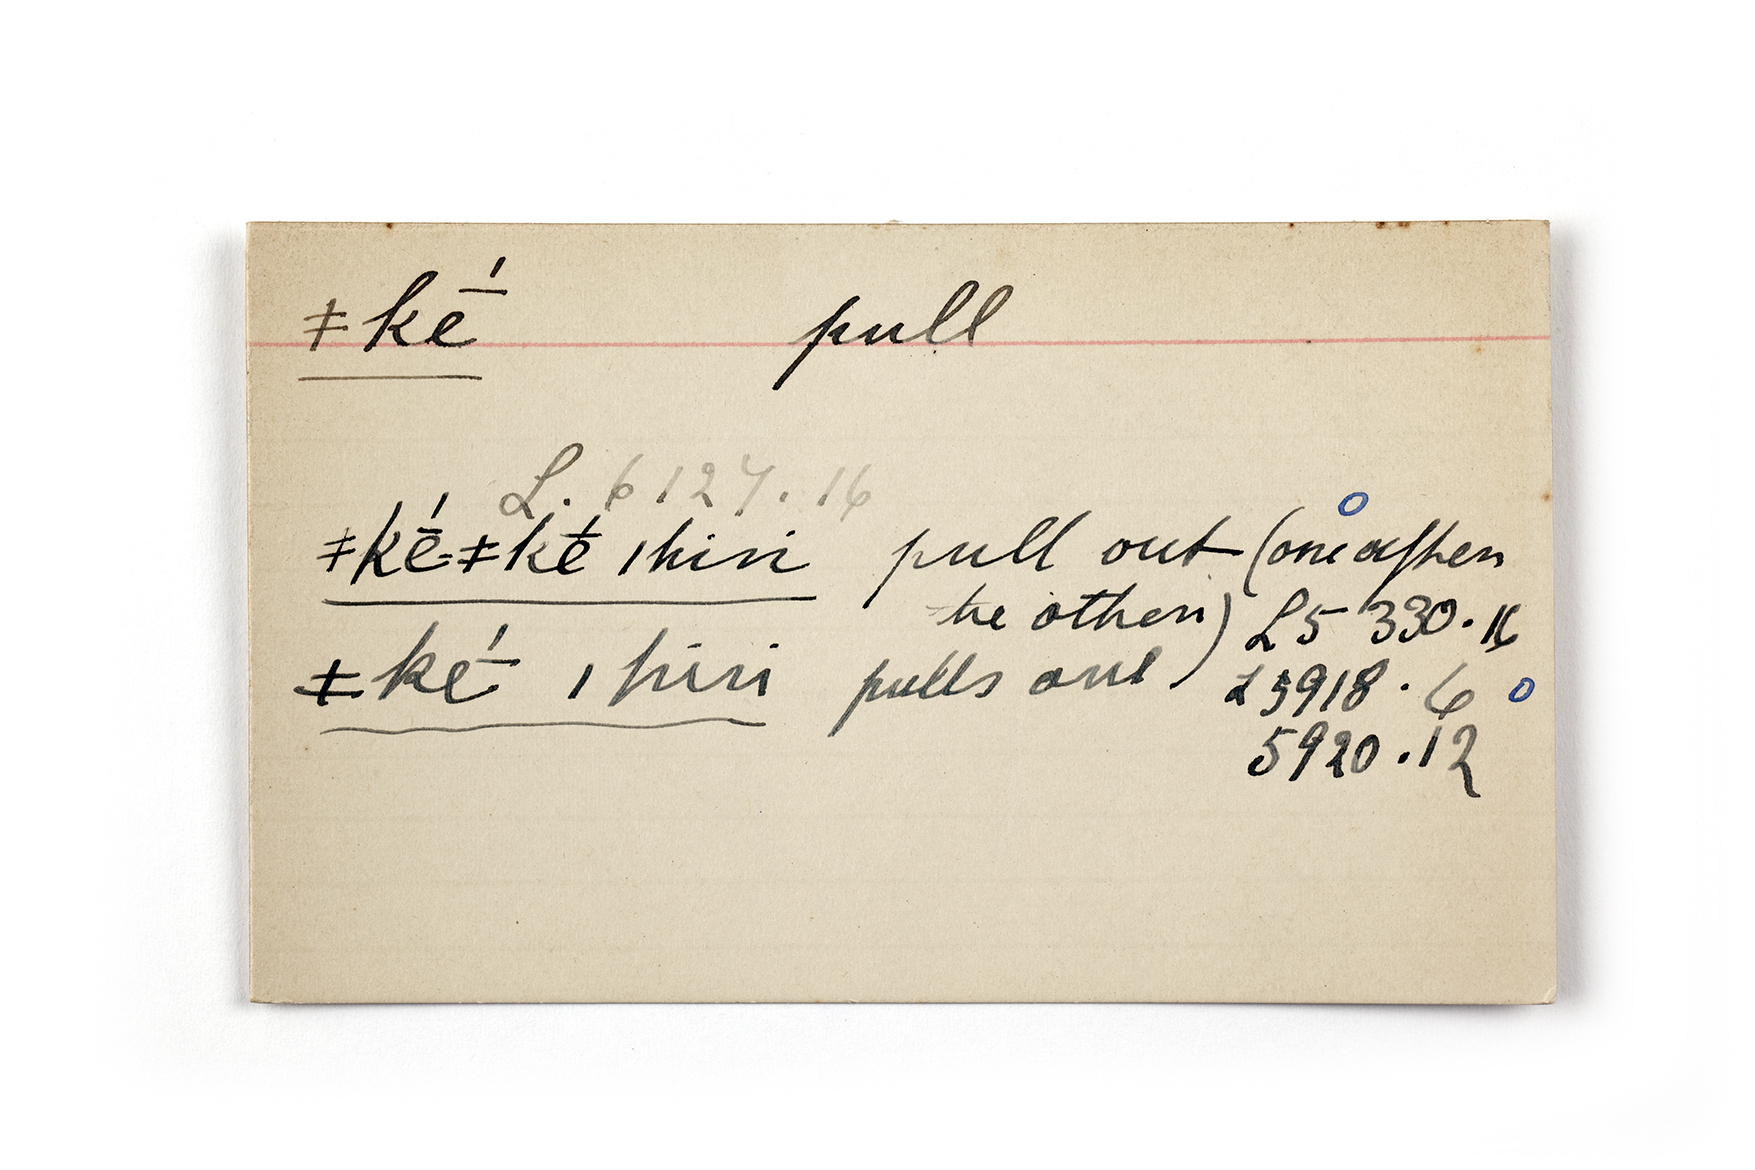 ǂkḗ pull
L. 6127.16
ǂkḗ-ǂkḗ ǀhiri pull out (one after
the other) L5 330.16
ǂkḗ ǀhiri pulls out L5918.6
5920.12